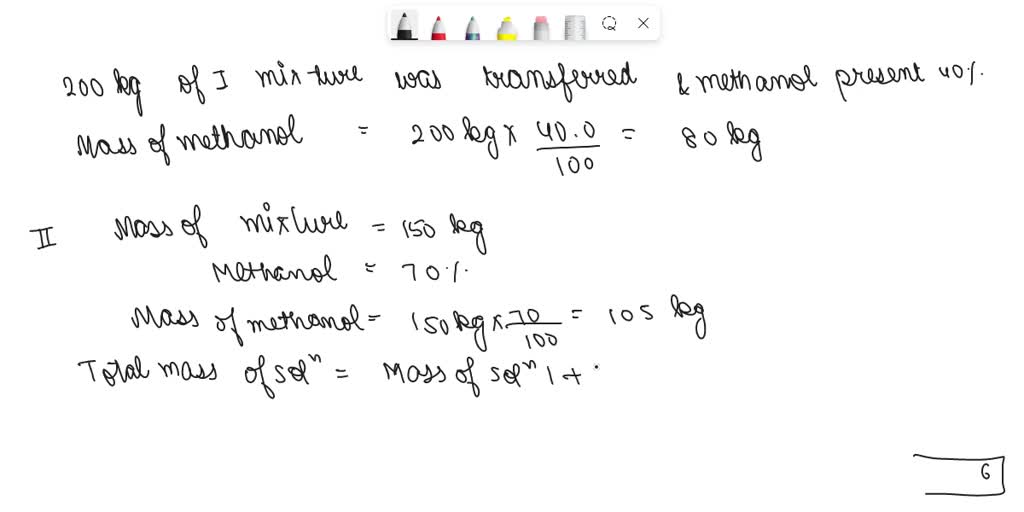 200 kg of I mixture was transferred & methanol present 40%.
Mass of methanol = 200 kg x 40.0/100 = 80 kg
II Mass of mixture = 150 kg
Methanol = 70%.
Mass of methanol = 150 kg x 70/100 = 105 kg
Total mass of solⁿ = Mass of solⁿ 1 +
6